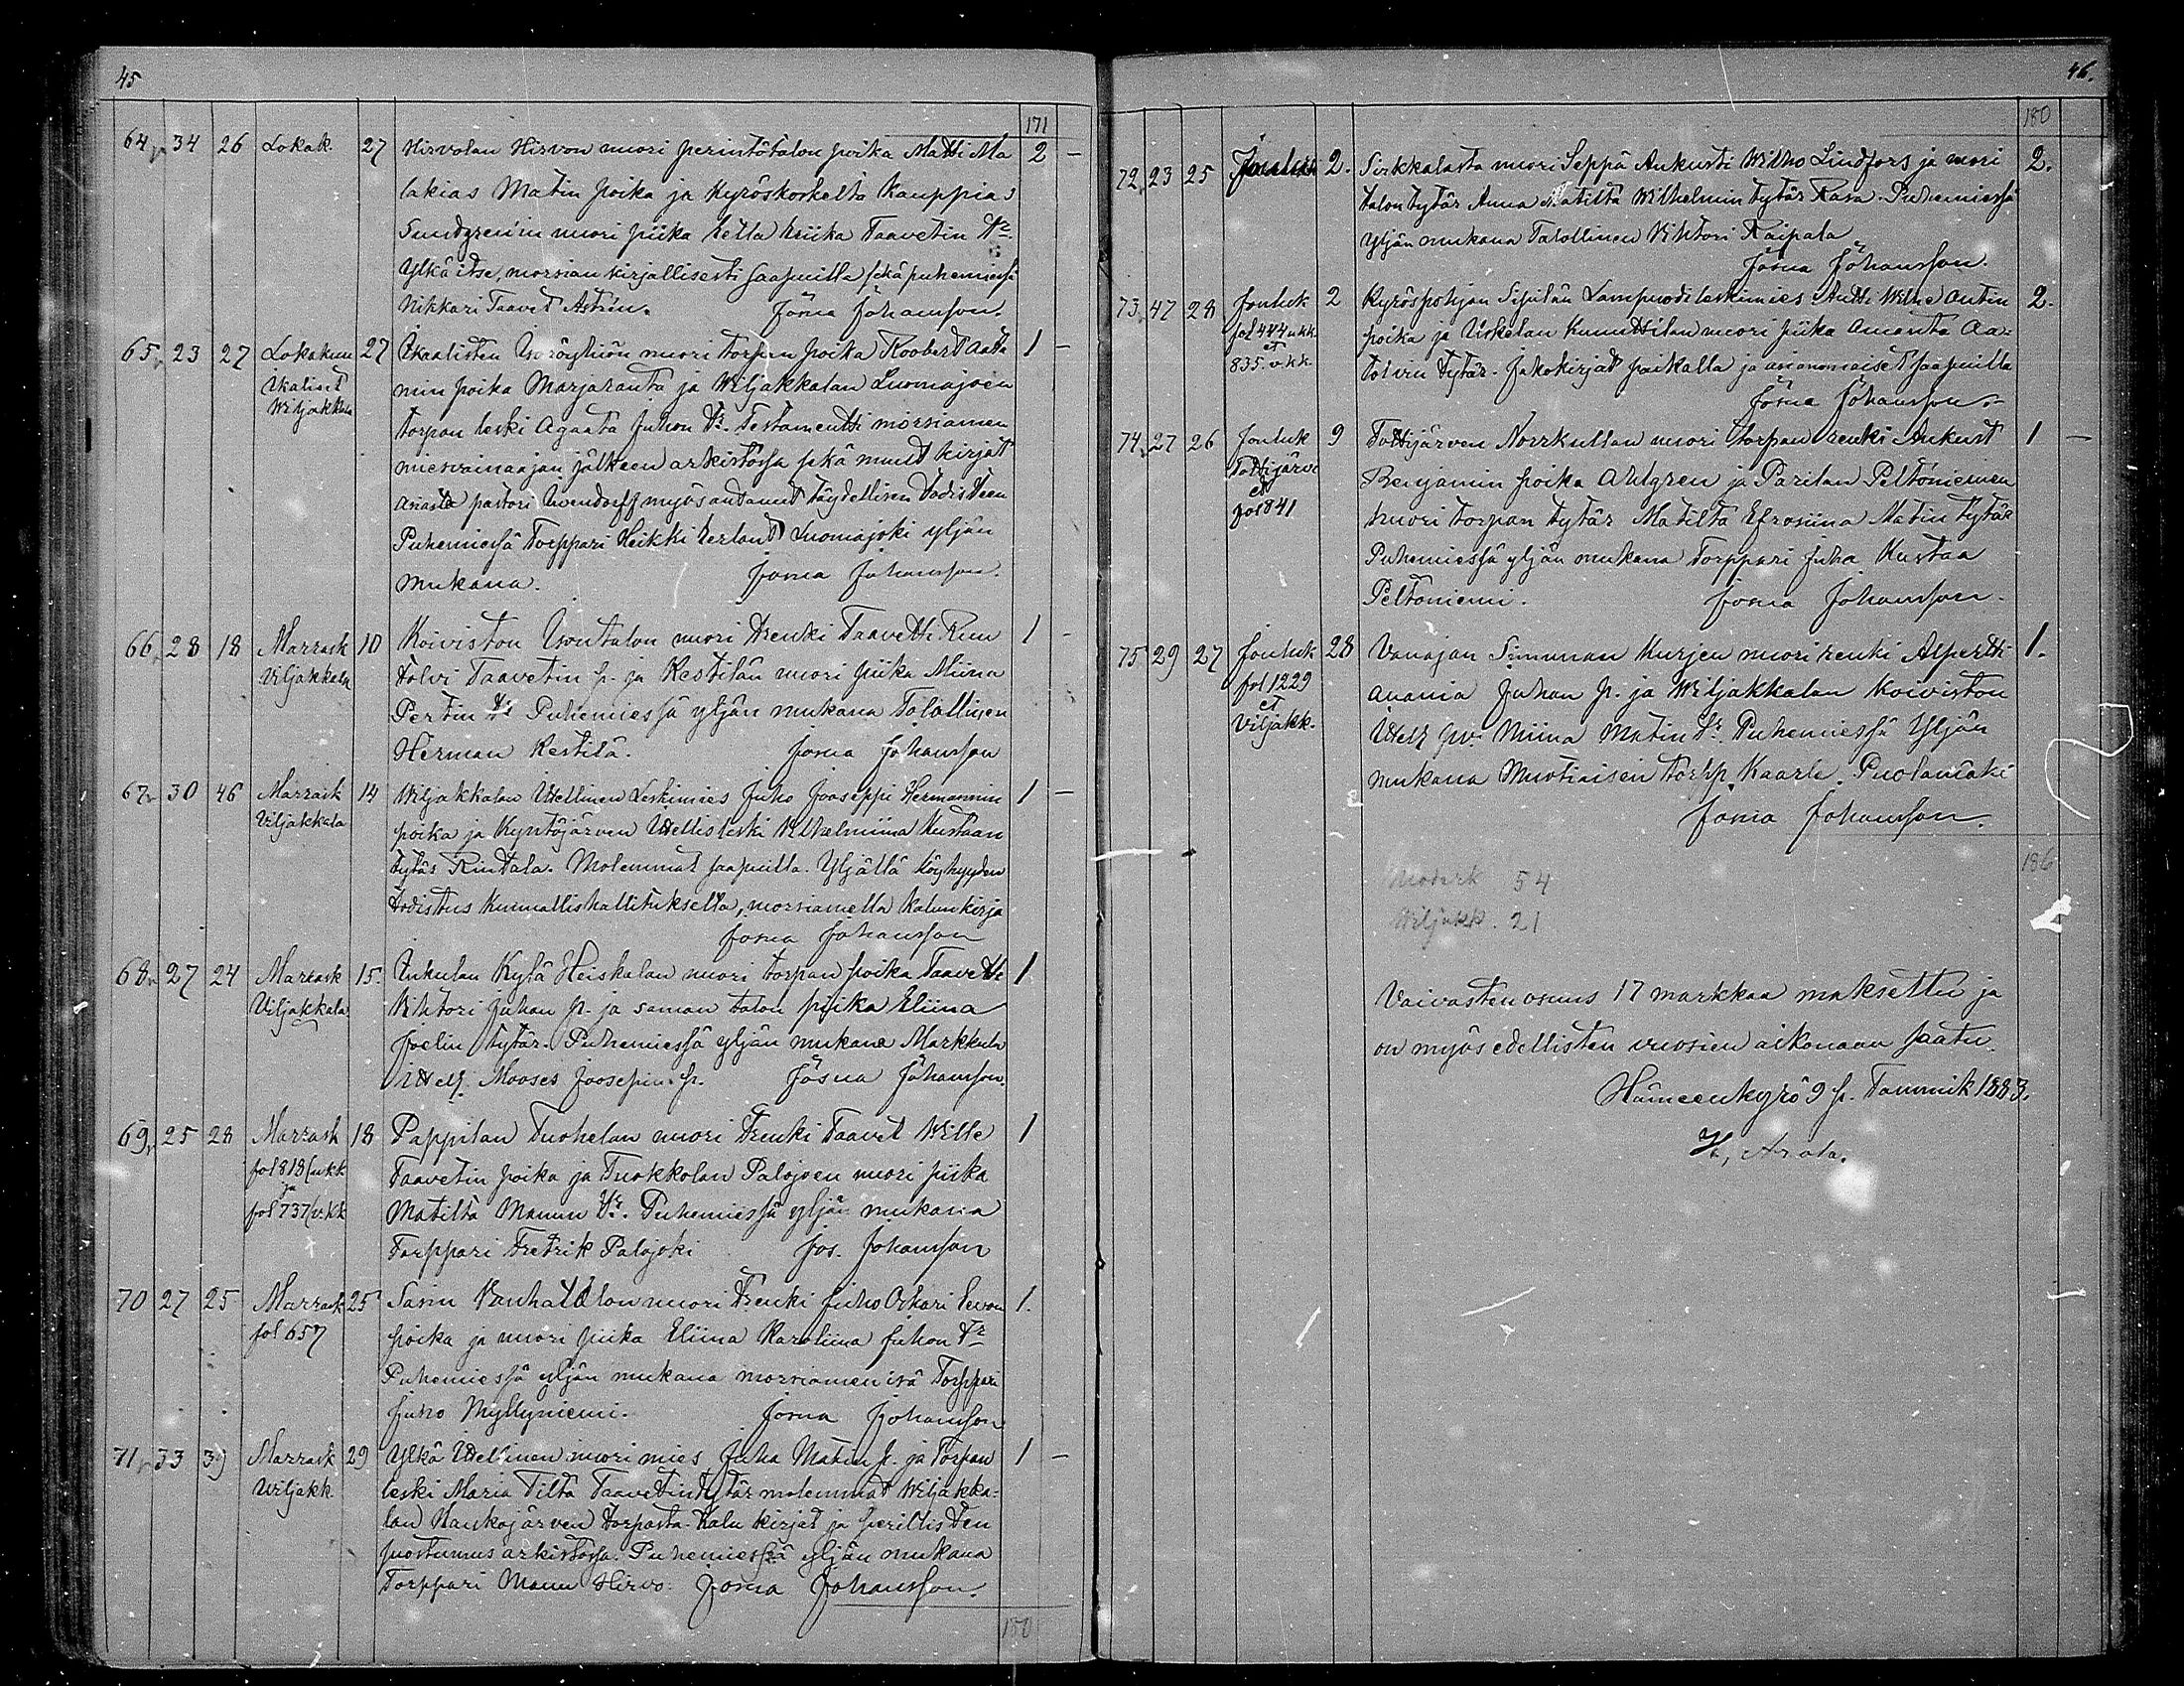 45
171
64 34 26 Lokak. 27 Hirvolan Hirvon nuori perintötalon poika Matti Ma 2 –
lakias Matin poika ja Kyröskoskelta Kauppias
Sundgrenin nuori piika Eella Eriika Taavetin tr.
Ylkä itse, morsian kirjallisesti saapuilla sekä puhemiessä
Nikkari Taavet Astrén. Josua Johansson.
65 23 27 Lokakuu 27 Ikaalisten nuori torpan poika Roobert Aata 1 –
Ikaliset
Wiljakkala
min poika Marjaranta ja Wiljakkalan Luomajoen
torpan leski Agaata Juhon tr. Testamentti morsiamen
miesvainaajan jälkeen arkistossa sekä muut kirjat
asiasta pastori myös antanut täydellisen todisteen
Puhemiessä Torppari Heikki Eerland Luomajoki yljän
mukana. Josua Johansson.
66 28 18 Marrask 10 Koiviston Uontalon nuori renki Taavetti Ruu 1 –
Viljakkala
Taavetin p. ja Kestilän nuori piika Miina
Pertin tr Puhemiessä yljän mukana Talollinen
Herman Kestilä. Josua Johansson
67 30 46 Marrask 14 Wiljakkalan Itellinen Leskimies Juho Jooseppi Hermannin 1 –
Viljakkala
poika ja Kyntöjärven Itellis leski Vilhelmiina Kustaan
tytär Rintala. Molemmat saapuilla. Yljällä köyhyyden
todistus Kunnallishallitukselta, morsiamella kalunkirja
Josua Johansson
68 27 24 Marrask 15. Inkulan Kylä Heiskalan nuori torpan poika Taavetti 1
Viljakkala
Vihtori Juhan p. ja saman talon piika Eliina
Joelin tytär. Puhemiessä yljän mukana Markkula
Itell. Mooses Joosepin p. Josua Johansson.
69 25 28 Marrask 18 Pappilan Tuohelan nuori renki Taavet Wille 1
fol 818/ukk
ja
fol 737/v.kk
Taavetin poika ja Tuokkolan Palojoen nuori piika
Matilta Manun tr. Puhemiessä yljän mukana
Torppari Fretrik Palojoki Jos. Johansson
70 27 25 Marrask 25 Sarin Vanhatalon nuori renki Juho Oskari Eevon 1.
fol 657
poika ja nuori piika Eliina Karoliina Juhon tr
Puhemiessä yljän mukana morsiamen isä Torppari
Juho Myllyniemi. Josua Johansson
71 33 39 Marrask 29 Ylkä Itellinen nuori mies Juha Matin p. ja Torpan 1 –
Viljakk.
leski Maria Tilta Taavetin tytär molemmat Wiljakka-
lan Haukijärven torpasta. Kalu kirjat ja perillisten
suostumus arkistossa. Puhemiessä yljän mukana
Torppari Manu Hirvo. Josua Johansson.
180
46.
180
72 23 25 Jouluk 2. Sirkkalasta nuori Seppä Aukusti Wilho Lindfors ja nuori 2.
talontytär Anna Matilta Wilhelmin tytär Rasa. Puhemiessä
Yljän mukana Talollinen Vihtori Raipala
Josua Johansson.
73 47 28 Jouluk 2 Kyröspohjan Sipilän Lampuoti leskimies Antti Wilhe Antin 2.
fol 444 ukk
et
835 vkk.
poika ja Uskelan Kunttilan nuori piika Amanta Aa-
tolvin tytär. Jakokirjat paikalla ja asianomaiset saapuilla
Josua Johansson.
74 27 26 Jouluk 9 Tottijärven Norrkullan nuori torpan renki Aukust 1 –
Tottijärvi
et
fol 841
Benjamin poika Ahlgren ja Parilan Peltoniemen
nuori torpan tytär Matilta Efrosiina Matin tytär
Puhemiessä yljän mukana Torppari Juha Kustaa
Peltoniemi. Josua Johansson.
75 29 27 Jouluk 28 Vanajan Simunan Kurjen nuori renki Alpertti 1.
fol 1229
et
Viljakk.
Anania Juhan p. ja Wiljakkalan Koiviston
Itell pv. Miina Matin tr. Puhemiessä Yljän
mukana torpp. Kaarle Puolamäki
Josua Johansson.
186
54
Wiljakk. 21
Vaivasten osuus 17 markkaa maksettu ja
on myös edellisten vuosien aikanaan saatu.
Hämeenkyrö 9 p. Tammik 1883.